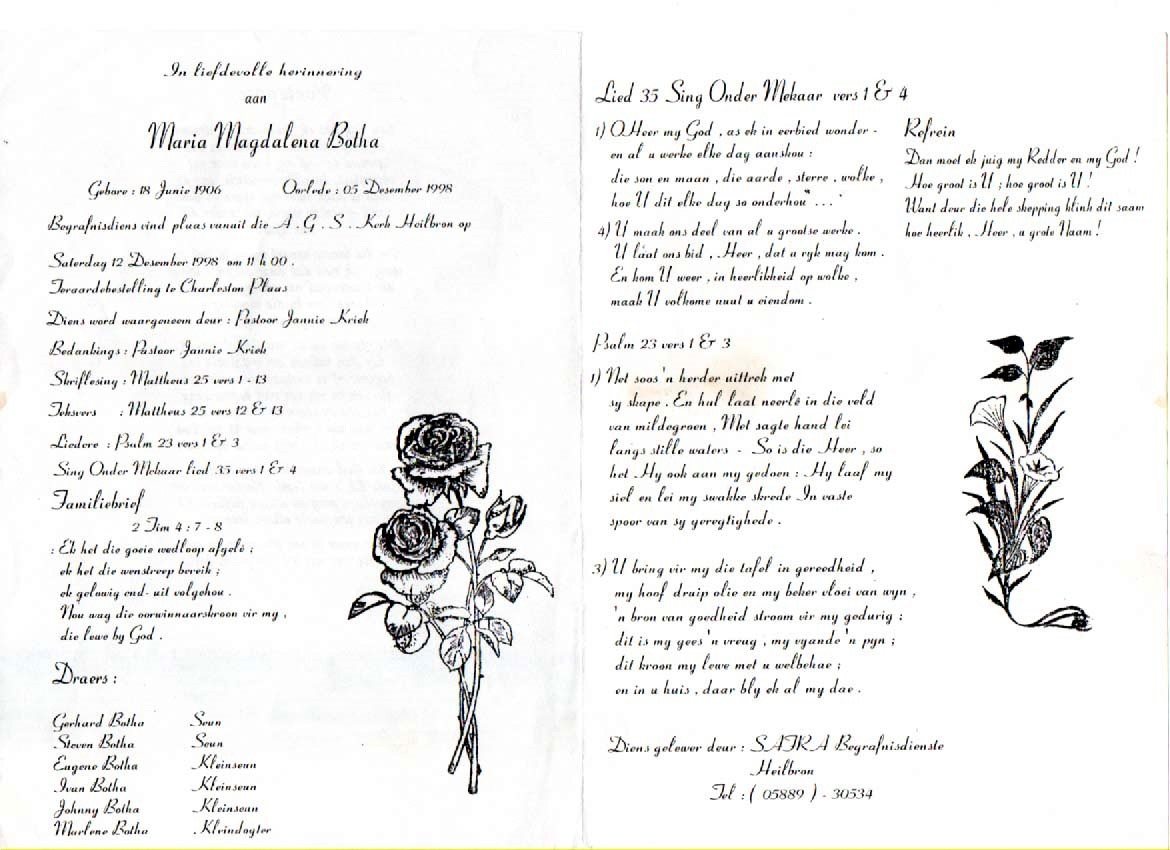 In liefdevolle herinnering
aan
Maria Magdalena Botha
Gebore : 18 Junie 1906 Oorlede : 05 Desember 1998
Begrafnisdiens vind plaas vanuit die A . G . S . Kerk Heilbron op
Saterdag 12 Desember 1998 om 11 h 00 .
Teraardebestelling te Charleston Plaas
Diens word waargeneem deur : Pastoor Jannie Kriek
Bedankings : Pastoor Jannie Kriek
Skriflesing : Mattheus 25 vers 1 - 13
Teksvers : Mattheus 25 vers 12 & 13
Liedere : Psalm 23 vers 1 & 3
Sing Onder Mekaar lied 35 vers 1 & 4
Familiebrief
2 Tim 4 : 7 - 8
: Ek het die goeie wedloop afgelê ;
ek het die wenstreep bereik ;
ek gelowig end- uit volgehou .
Nou wag die oorwinnaarskroon vir my ,
die lewe by God .
Draers :
Gerhard Botha Seun
Steven Botha Seun
Eugene Botha Kleinseun
Ivan Botha Kleinseun
Johnny Botha Kleinseun
Marlene Botha . Kleindogter
Lied 35 Sing Onder Mekaar vers 1 & 4
1) O Heer my God , as ek in eerbied wonder -
en al u werke elke dag aanskou :
die son en maan , die aarde , sterre , wolke ,
hoe U dit elke dag so onderhou ... "
4) U maak ons deel van al u grootse werke .
U laat ons bid , Heer , dat u ryk mag kom .
En kom U weer , in heerlikheid op wolke ,
maak U volkome nuut u eiendom .
Refrein
Dan moet ek juig my Redder en my God !
Hoe groot is U ; hoe groot is U !
Want deur die hele skepping klink dit saam
hoe heerlik , Heer , u grote Naam !
Psalm 23 vers 1 & 3
1) Net soos 'n herder uittrek met
sy skape . En hul laat neerlê in die veld
van mildegroen , Met sagte hand lei
langs stille waters - So is die Heer , so
het Hy ook aan my gedoen : Hy laaf my
siel en lei my swakke skrede In vaste
spoor van sy geregtighede .
3) U bring vir my die tafel in gereedheid ,
my hoof druip olie en my beker vloei van wyn ,
'n bron van goedheid stroom vir my gedurig ;
dit is my gees 'n vreug , my vyande 'n pyn ;
dit kroon my lewe met u welbehae ;
en in u huis , daar bly ek al my dae .
Diens gelewer deur : SAFRA Begrafnisdienste
Heilbron
Tel : ( 05889 ) - 30534